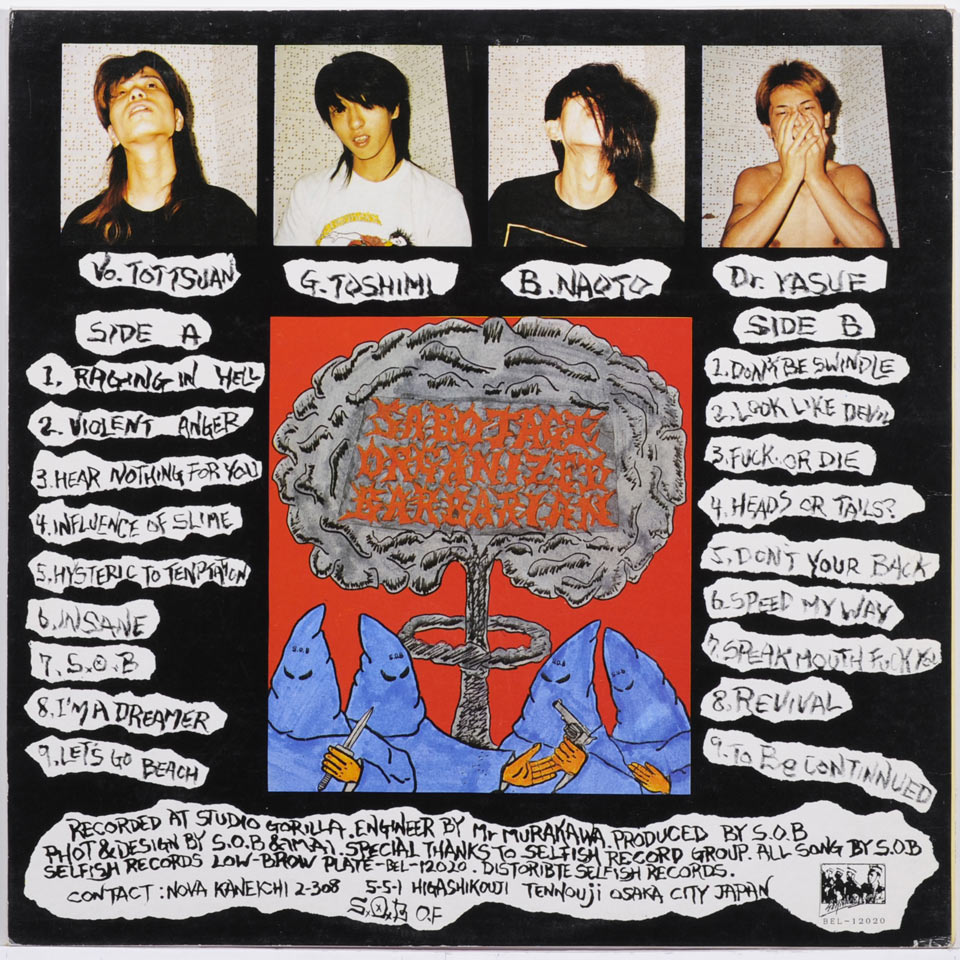 Vo. TOTTSUAN
G. TOSHIMI
B. NAOTO
Dr. YASUE
SIDE A
1. RAGING IN HELL
2. VIOLENT ANGER
3. HEAR NOTHING FOR YOU
4. INFLUENCE OF SLIME
5. HYSTERIC TO TENPTATION
6. INSANE
7. S.O.B
8. I'M A DREAMER
9. LET'S GO BEACH
SABOTAGE
ORGANIZED
BARBARIAN
S.O.B
S.O.B
S.O.B
SIDE B
1. DON'T BE SWINDLE
2. LOOK LIKE DEVIL
3. FUCK. OR DIE
4. HEADS OR TAILS?
5. DON'T YOUR BACK
6. SPEED MY WAY
7. SPEAK MOUTH FUCK YOU
8. REVIVAL
9. TO Be CONTINNUED
RECORDED AT STUDIO GORILLA. ENGINEER BY Mr MURAKAWA. PRODUCED BY S.O.B
PHOT & DESIGN BY S.O.B & IMAI. SPECIAL THANKS TO SELFISH RECORD GROUP. ALL SONG BY S.O.B
SELFISH RECORDS LOW-BROW PLATE-BEL-12020. DISTORIBTE SELFISH RECORDS.
CONTACT : NOVA KANEICHI 2-308 5-5-1 HIGASHIKOUJI TENNOUJI OSAKA CITY JAPAN
S.O.B O.F
BEL-12020